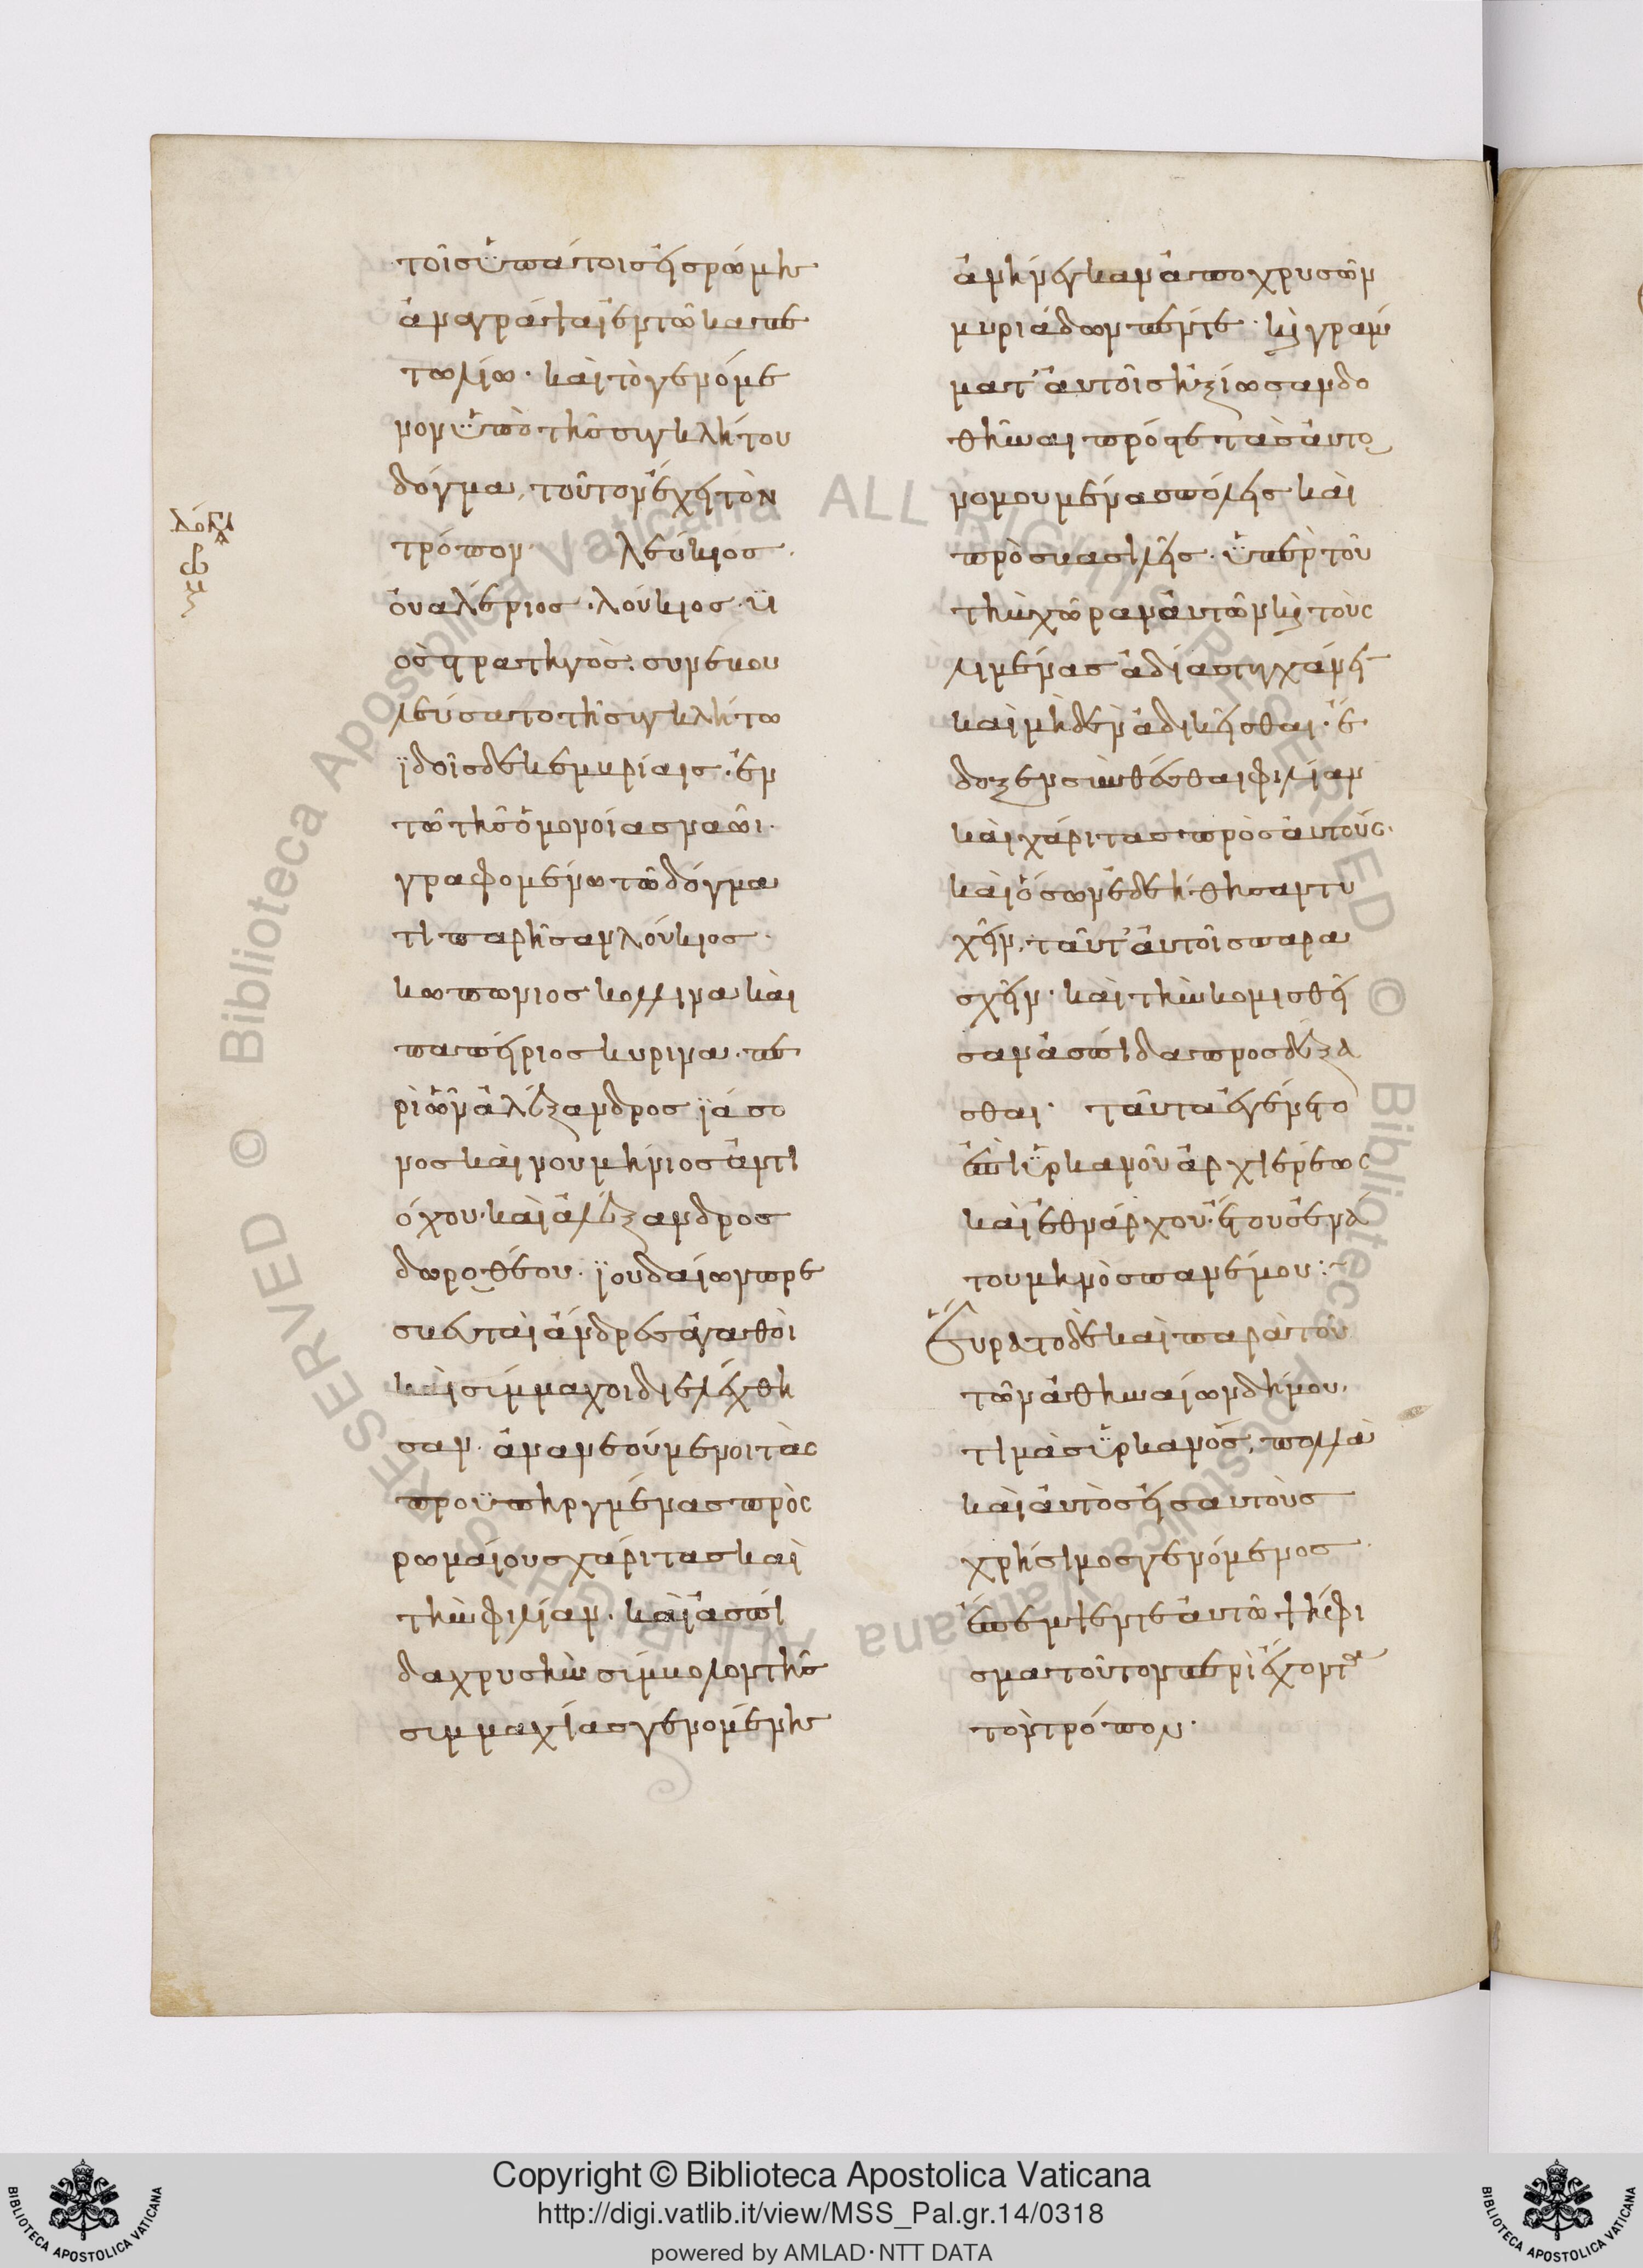 τοῖς ὑπάτοις εἰς ῥώμην
ἀναγράψαι ἐν τῶ καπε
τωλίω· καὶ τὸ γενόμε
νον ὑπὸ τῆς συγκλήτου
δόγμα, τοῦτον ἔχει τὸν
τρόπον· λεύκιος
οὐαλέριος· λούκιος ὑι
ὸς στρατηγὸς· συνεβου
λεύσατο τῆ συγκλήτω
ϊδοῖς δεκεμβρίαις· ἐν
τῶ τῆς ὁμονοίας ναῶι·
γραφομένω τῶ δόγμα
τι παρῆσαν λούκιος
κωπώνιος κολλινα καὶ
παπείριος κυρινα· πε
ρὶ ὧν ἀλέξανδρος ϊάσο
νος καὶ νουμήνιος ἀντι
όχου· καὶ ἀλέξανδρος
δωροθέου· ϊουδαίων πρε
σβευταὶ ἄνδρες ἀγαθοὶ
καὶ σύμμαχοι διελέχθη
σαν· ἀνανεούμενοι τὰς
προϋπηργμένας πρὸς
ῥωμαίους χάριτας καὶ
τὴν φιλίαν· καὶ ἀσπί
δα χρυσῆν σύμβολον τῆς
συμμαχίας γενομένην
λόγι
ϙ
φ
μ
ἀνήνεγκαν ἀπὸ χρυσῶν
μυριάδων πέντε· κὶ γραμ
ματ' αὐτοῖς ἠξίωσαν δο
θῆναι πρός τε τὰς αὐτο
νομουμένας πόλεις καὶ
πρὸς βασιλεῖς· ὑπὲρ τοῦ
τὴν χῶραν αὐτῶν κὶ τοὺς
λιμένας ἀδίας τυγχάνειν
καὶ μηδὲν ἀδικεῖσθαι· ἔ
δοξεν συνθέσθαι φιλίαν
καὶ χάριτας πρὸς αὐτούς·
καὶ ὅσων ἐδεήθησαν τυ
χεῖν, ταῦτ' αὐτοῖς παρα
σχεῖν· καὶ τὴν κομισθεῖ
σαν ἀσπίδα προσδέξα
σθαι· ταῦτα ἐγένετο
ἐπὶ ὑρκανοῦ ἀρχιερέως
καὶ ἐθνάρχου· ἔτους ἐνά
του μηνὸς πανέμου:~
Εὕρατο δὲ καὶ παρὰ τοῦ
τῶν ἀθηναίων δήμου,
τιμὰς ὑρκανός, πολλὰ
καὶ αὐτὸς εἰς αὐτοὺς
χρήσιμος γενόμενος
ἔπεμψέν τε αὐτῶ ψήφι
σμα τοῦτον περιέχοντα
τὸν τρόπον·
Copyright © Biblioteca Apostolica Vaticana
http://digi.vatlib.it/view/MSS_Pal.gr.14/0318
powered by AMLAD·NTT DATA